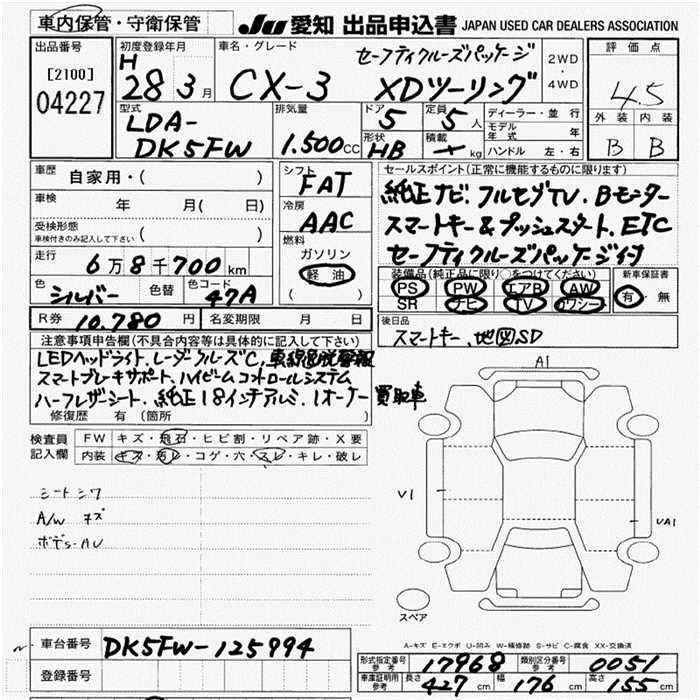 車内保管・守衛保管
JU 愛知 出品申込書 JAPAN USED CAR DEALERS ASSOCIATION
出品番号
[2100]
04227
初度登録年月
H 28 3月
車名・グレード
セーフティクルーズパッケージ
CX-3 XDツーリング
2WD
・
4WD
評価点
4.5
外装 内装
B B
型式
LDA-
DK5FW
排気量
1.500cc
ドア
5
定員
5人
形状
HB
積載
kg
ディーラー・並行
モデル年式 年
ハンドル 左・右
車歴
自家用・( )
車検
年 月( 日)
受検形態
車検付きのみ記入して下さい
( )
走行
6万8千700km
色
シルバー
色替
色コード
47A
シフト
FAT
冷房
AAC
燃料
ガソリン
軽油
( )
セールスポイント(正常に機能するものに限ります)
純正ナビ.フルセグTV.Bモニター
スマートキー&プッシュスタート.ETC
セーフティクルーズパッケージ付
装備品(純正品に限り○をつけてください)
PS PW エアB AW
SR ナビ TV カワシート
新車保証書
有・無
R券 10.780円 名変期限 月 日
後日品
スマートキー.地図SD
注意事項申告欄(不具合内容等は具体的に記入して下さい)
LEDヘッドライト.レーダークルーズC.車線逸脱警報
スマートブレーキサポート.ハイビームコントロールシステム
ハーフレザーシート.純正18インチアルミ.1オーナー 買取車
修復歴 有 (箇所 )
検査員
記入欄
FW キズ・飛石・ヒビ割・リペア跡・X要
内装 キズ・汚レ・コゲ・穴・スレ・キレ・破レ
シートシワ
A/W キズ
A1
V1
UA1
スペア
A-キズ E-エクボ U-凹み W-補修跡 S-サビ C-腐食 XX-交換済
車台番号 DK5FW-125994
登録番号
形式指定番号 参考 17968 類別区分番号 参考 0051
車庫証明用 参考 長さ 427cm 幅 176cm 高さ 155cm